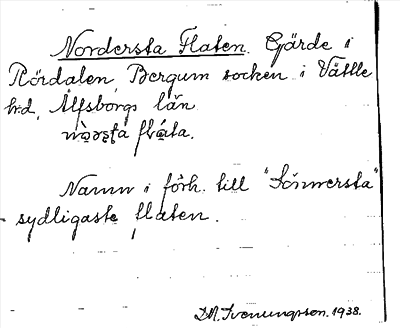 Nordersta Flaten. Gärde i
Rördalen, Bergum socken i Vättle
hrd, Älfsborgs län
flata.
Namn i förh. till "Sönnersta"
sydligaste flaten.
D.A. Ivenungpson. 1938.